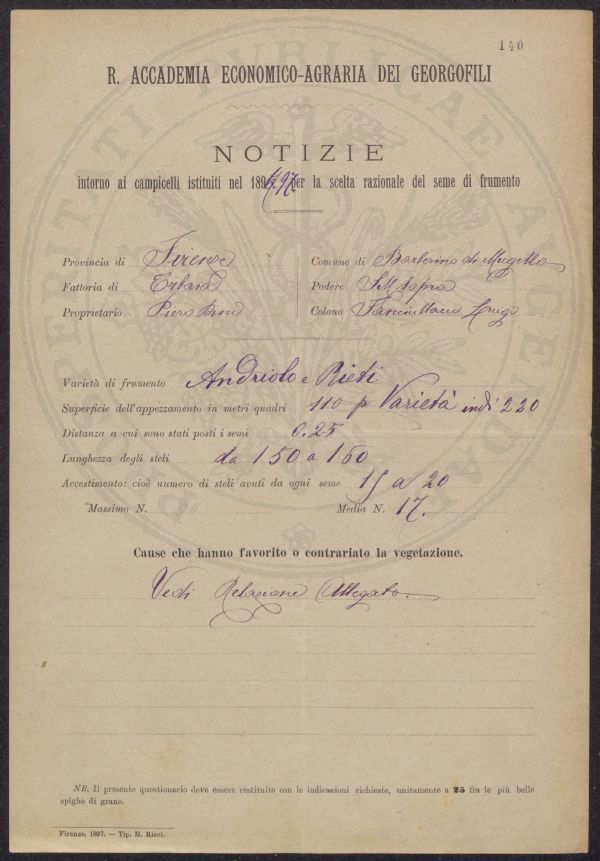 140
R. ACCADEMIA ECONOMICO-AGRARIA DEI GEORGOFILI
NOTIZIE
intorno ai campicelli istituiti nel 1896/97. per la scelta razionale del seme di frumento
Provincia di Firenze
Comune di Barberino di Mugello
Fattoria di Erbaia
Podere S.M. Sopra
Proprietario Piero
Colono Luigi
Varietà di frumento Andriolo e Rieti
Superficie dell'appezzamento in metri quadri 110 p Varietà indi 220
Distanza a cui sono stati posti i semi 0.25
Lunghezza degli steli da 150 a 160
Accestimento: cioè numero di steli avuti da ogni seme 15 a 20
Massimo N. 20 Media N. 17.
Cause che hanno favorito o contrariato la vegetazione.
Vedi Relazione Allegato.
NB. Il presente questionario deve essere restituito con le indicazioni richieste, unitamente a 25 fra le più belle
spighe di grano.
Firenze, 1897. — Tip. M. Ricci.